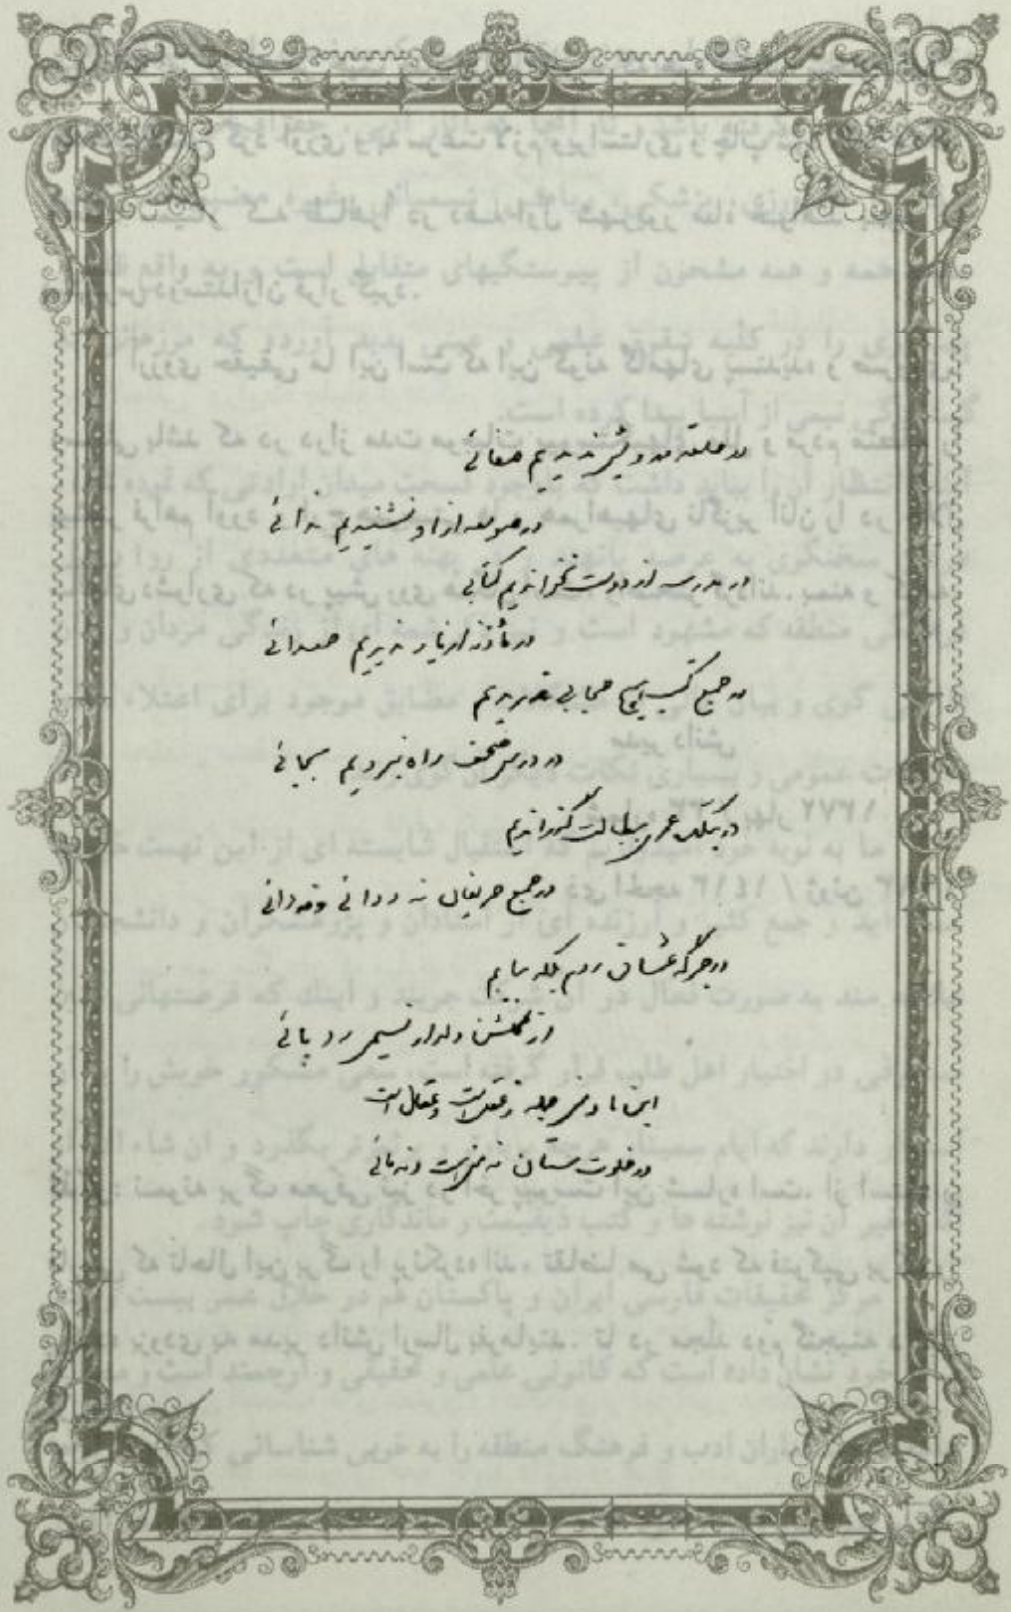 در حلقه درویش ندیدیم صفائی
در صومعه از او نشنیدیم ندائی
در مدرسه از دوست نخواندیم کتابی
در مأذنه از یار ندیدیم صدائی
در جمع کتب هیچ حجابی ندریدیم
در درس صحف راه نبردیم بجائی
در بتکده عمری ببطالت گذراندیم
در جمع حریفان نه دوائی و نه دائی
در جرگه عشاق روم بلکه بیابم
از گلشن دلدار نسیمی رد پائی
این ما و منی جمله ز عقل است و عقال است
در خلوت مستان نه منی است و نه مائی